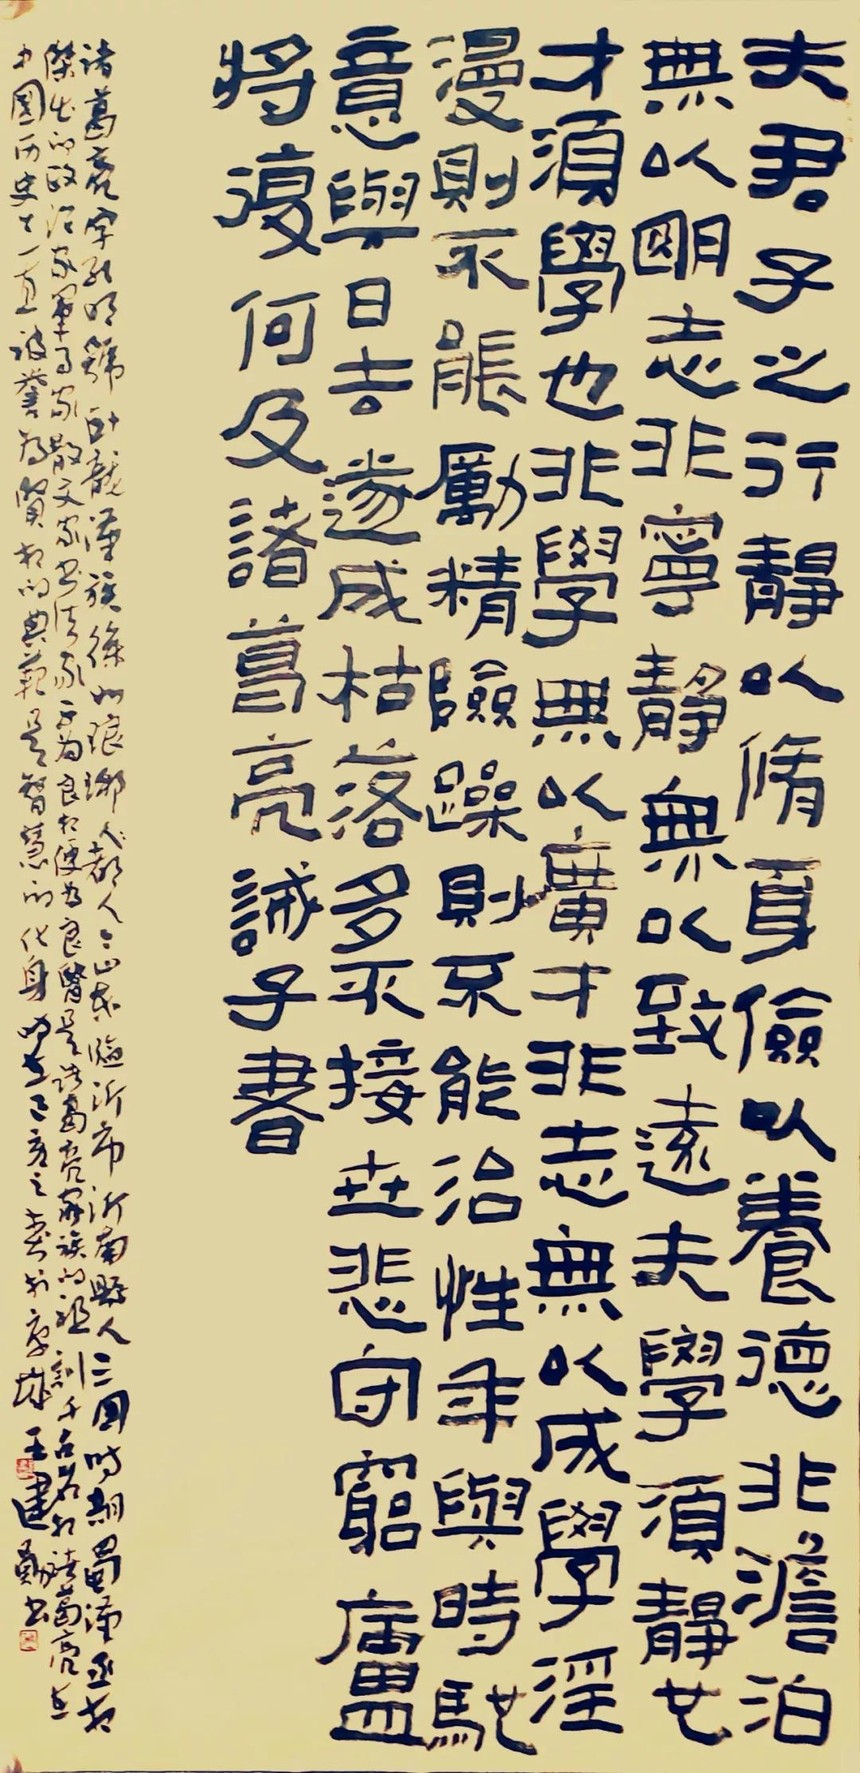 夫君子之行靜以脩身儉以養德非澹泊
無以明志非寧靜無以致遠夫學須靜也
才須學也非學無以廣才非志無以成學淫
漫則不能勵精險躁則不能治性年與時馳
意與日去遂成枯落多不接世悲守窮廬
將復何及諸葛亮誡子書
諸葛亮字孔明號臥龍漢族徐州琅琊人都人今山东臨沂市沂南縣人三國时期蜀漢丞相
傑出的政治家軍事家散文家书法家不为良相便为良醫是诸葛亮家族的祖训千古名相诸葛亮在
中國历史上一直被譽为賢相的典範是智慧的化身时在己亥之 王建勛书